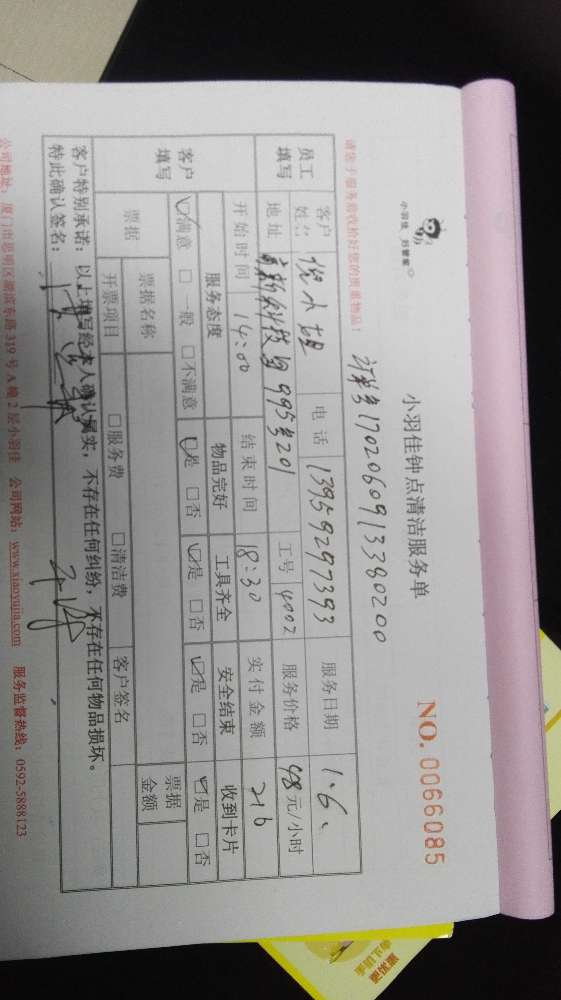 小羽佳 好管家
小羽佳钟点清洁服务单
NO. 0066085
订单号1702060913380200
请您于服务前收拾好您的贵重物品！
员工填写 客户姓名 倪小姐 电话 13959297393 服务日期 1.6、
地址 995号201 工号 4002 服务价格 48元/小时
开始时间 14:00 结束时间 18:30 实付金额 216
客户填写 服务态度 物品完好 工具齐全 安全结束 收到卡片
☑满意 □一般 □不满意 ☑是 □否 ☑是 □否 ☑是 □否 ☑是 □否
票据 票据名称 票据金额
开票项目 □服务费 □清洁费 客户签名
客户特别承诺：以上填写经本人确认属实，不存在任何纠纷，不存在任何物品损坏。
特此确认签名：
公司地址：厦门市思明区湖滨东路 319 号 A 幢 2 层小羽佳 公司网站：www.xiaoyujia.com 服务监督热线：0592-5888123